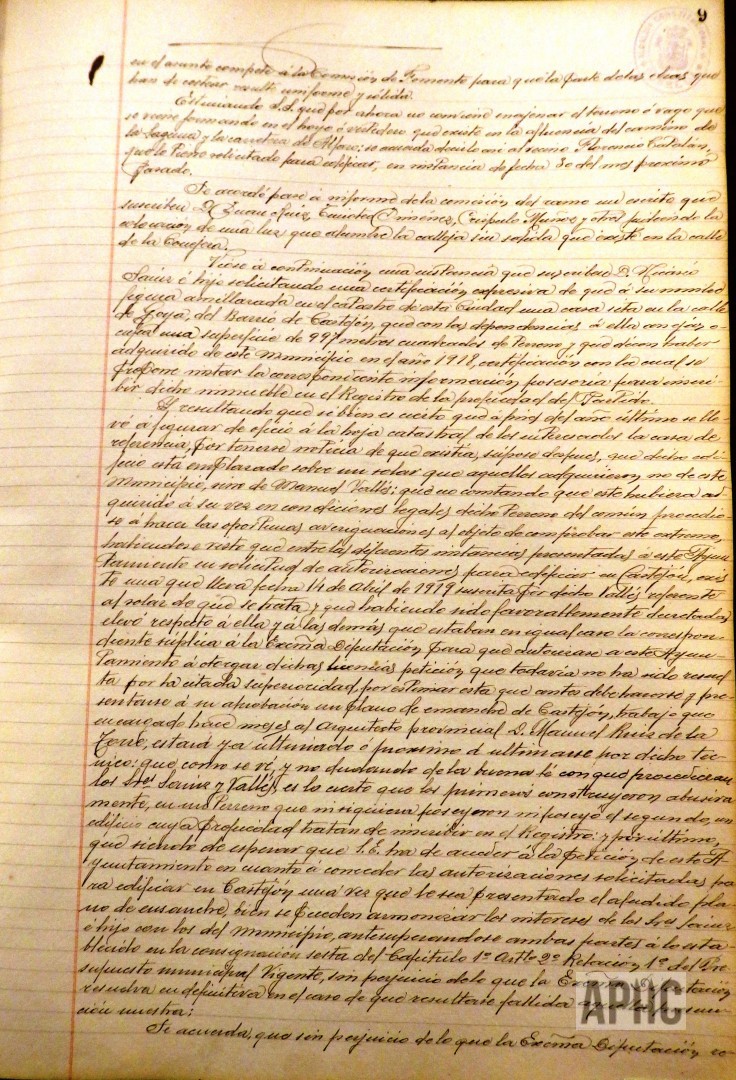 9
en el asunto compete á la Comisión de Fomento para que la parte de las obras que
han de costear resulte uniforme y sólida.
Estimando S.S. que por ahora no conviene enajenar el terreno ó rago que
se viene formando en el hoyo ó vertedero que existe en la afluencia del camino de
la Laguna y la carretera de Alfaro: se acuerda decirlo así al vecino Florencio Catalán,
que lo tiene solicitado para edificar, en instancia de fecha 30 del mes próximo
pasado.
Se acordó pase á informe de la comisión del ramo un escrito que
suscriben D. Juan Ruiz, Jiménez, Críspulo Muñoz y otros pidiendo la
colocación de una luz que alumbre la calleja sin salida que existe en la calle
de la
Vióse á continuación una instancia que suscriben D. Nicasio
Sainz é hijo solicitando una certificación expresiva de que á su nombre
figura amillarada en el catastro de esta Ciudad una casa sita en la calle
de Goya, del Barrio de Castejón, que con las dependencias á ella anejas o-
cupa una superficie de 997 metros cuadrados de terreno y que dicen haber
adquirido de este Municipio en el año 1918, certificación con la cual se
propone instar la correspondiente información posesoria para inscri-
bir dicho inmueble en el Registro de la propiedad del Partido.
Y resultando que si bien es cierto que á fines del año último se lle-
vó á figurar de oficio á la hoja catastral de los interesados la casa de
referencia, por tenerse noticia de que existía, súpose después, que dicho edi-
ficio está emplazado sobre un solar que aquellos adquirieron no de este
Municipio, sino de Manuel Vallés: que no constando que este hubiera ad-
quirido á su vez en condiciones legales dicho terreno del común, procedió-
se á hacer las oportunas averiguaciones al objeto de comprobar este extremo,
habiéndose visto que entre las diferentes instancias presentadas á este Ayun-
tamiento en solicitud de autorizaciones para edificar en Castejón, exis-
te una que lleva fecha 14 de Abril de 1919 suscrita por dicho Vallés referente
al solar de que se trata y que habiendo sido favorablemente decretada
elevó respecto á ella y á las demás que estaban en igual caso la correspon-
diente súplica á la Excma Diputación para que autorizase á este Ayun-
tamiento á otorgar dichas licencias petición que todavía no ha sido resuel-
ta por la citada superioridad, por estimar esta que antes debe hacerse y pre-
sentarse á su aprobación un plano de ensanche de Castejón, trabajo que
encargado hace meses al Arquitecto provincial D. Manuel Ruiz de la
Torre, estará ya ultimado ó próximo á ultimarse por dicho téc-
nico: que como se vé, y no dudando de la buena fé con que procedieran
los Sres Sainz y Vallés, es lo cierto que los primeros construyeron abusiva-
mente, en un terreno que ni siquiera poseyeron ni poseyó el segundo, un
edificio cuya propiedad tratan de inscribir en el Registro: y por último,
que siendo de esperar que S.E. ha de acceder á la petición de este A-
yuntamiento en cuanto á conceder las autorizaciones solicitadas pa-
ra edificar en Castejón una vez que le sea presentado el aludido pla-
no de ensanche, bien se pueden armonizar los intereses de los Sres Sainz
é hijo con los del municipio, ambas partes á lo esta-
blecido en la consignación sexta del Capítulo 1º Artlo 2º Relación 1º del Pre-
supuesto municipal Vigente, sin perjuicio de lo que la Excma Diputación
resuelva en definitiva en el caso de que resultase fallida
ción nuestra:
Se acuerda, que sin perjuicio de lo que la Excma Diputación re-
APHC